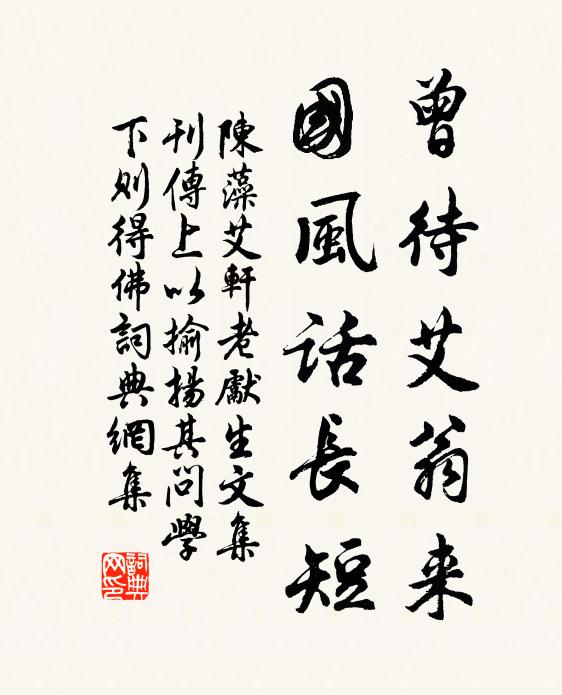 曾待艾翁来
國風話長短
陳藻艾軒老獻生文集
刊傳上以揄揚其問學
下則得佛詞典網集
詞典
网印